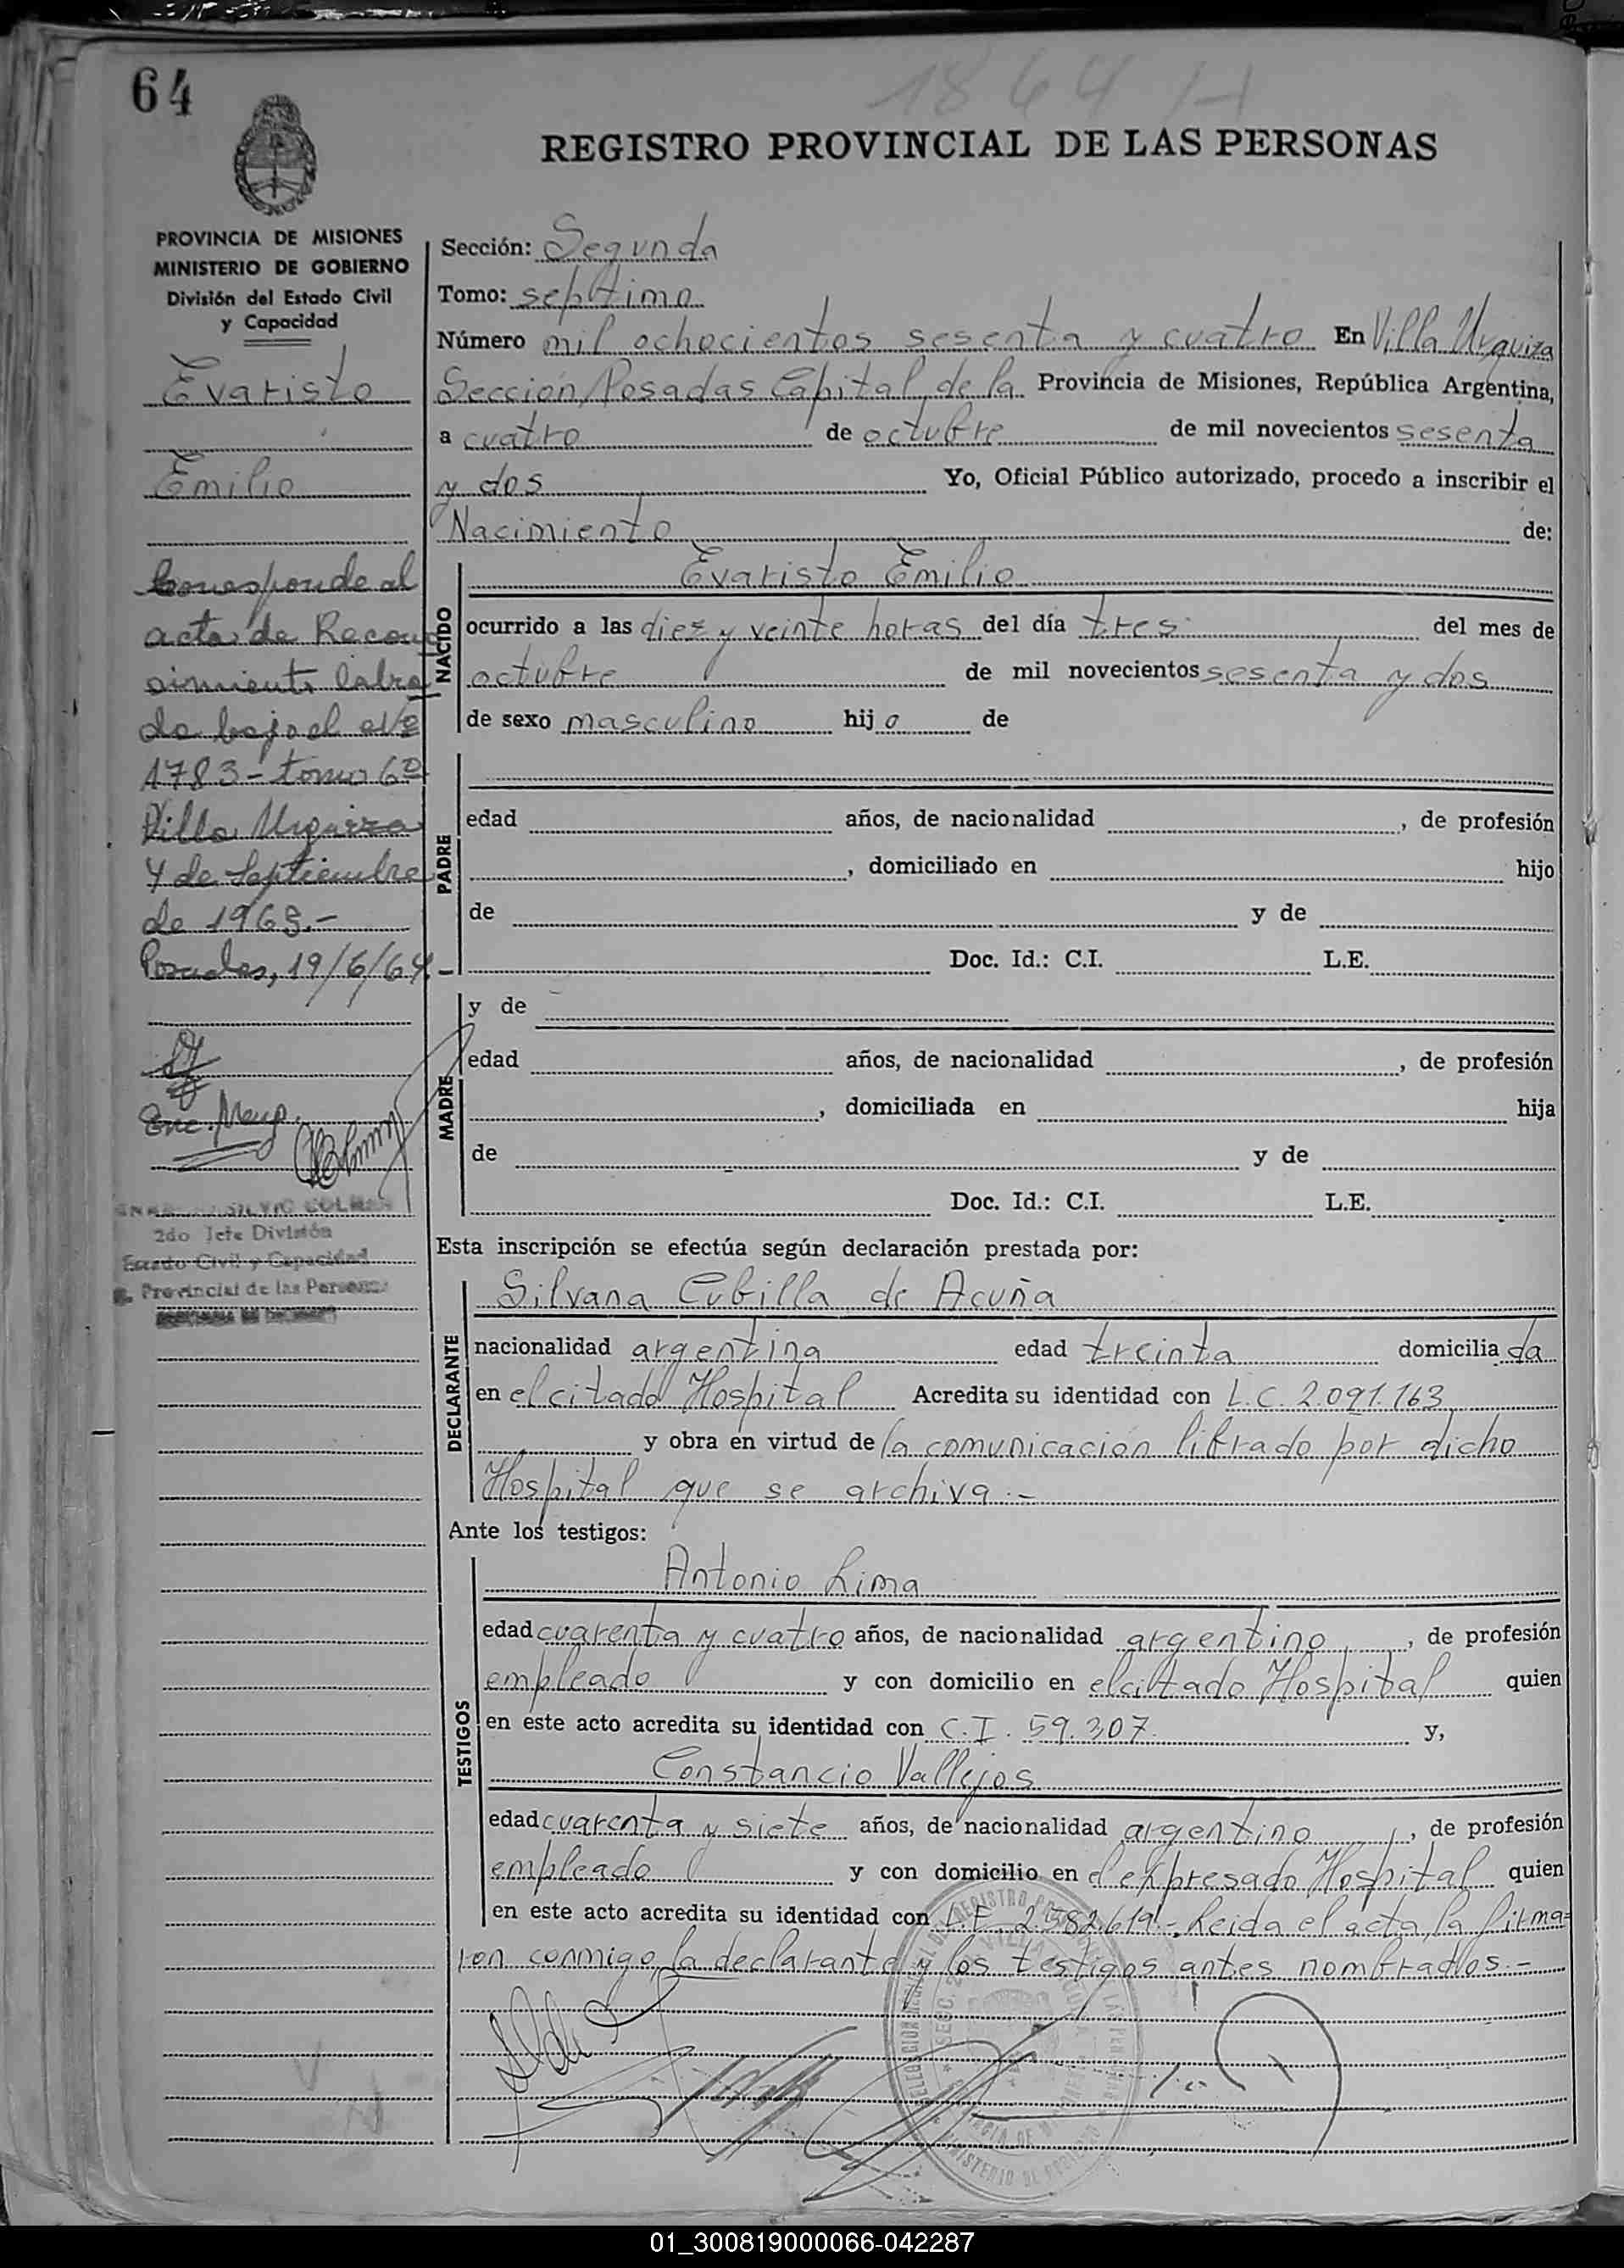 64
1864 H
REGISTRO PROVINCIAL DE LAS PERSONAS
PROVINCIA DE MISIONES
MINISTERIO DE GOBIERNO
División del Estado Civil
y Capacidad
Evaristo
Emilio
Corresponde al
acta de Recono
simiento labra
do bajo el Nº
1783 - tomo 6º
Villa Urquiza
4 de Septiembre
de 1963.-
Posadas, 19/6/64.-
Enc. Mesa
2do Jefe División
Estado Civil y Capacidad
Provincial de las Personas
Sección: Segunda
Tomo: sehtimo
Número mil ochocientos sesenta y cuatro En Villa Urquiza
Sección, Posadas Capital de la Provincia de Misiones, República Argentina,
a cuatro de octubre de mil novecientos sesenta
y dos Yo, Oficial Público autorizado, procedo a inscribir el
Nacimiento de:
NACIDO
Evaristo Emilio
ocurrido a las diez y veinte horas del día tres del mes de
octubre de mil novecientos sesenta y dos
de sexo masculino hijo de
PADRE
edad años, de nacionalidad , de profesión
, domiciliado en hijo
de y de
Doc. Id.: C.I. L.E.
MADRE
y de
edad años, de nacionalidad , de profesión
, domiciliada en hija
de y de
Doc. Id.: C.I. L.E.
Esta inscripción se efectúa según declaración prestada por:
DECLARANTE
Silvana Cubilla de Acuña
nacionalidad argentina edad treinta domiciliada
en el citado Hospital Acredita su identidad con L.C. 2.091.163
y obra en virtud de la comunicación librado por dicho
Hospital que se archiva.-
Ante los testigos:
TESTIGOS
Antonio Lima
edad cuarenta y cuatro años, de nacionalidad argentino, de profesión
empleado y con domicilio en el citado Hospital quien
en este acto acredita su identidad con C.I. 59.307. y,
Constancio Vallejos
edad cuarenta y siete años, de nacionalidad argentino, de profesión
empleado y con domicilio en el expresado Hospital quien
en este acto acredita su identidad con L.E. 2.582.619.- Leida el acta, la firma=
ron conmigo, la declarante y los testigos antes nombrados.-
01_300819000066-042287